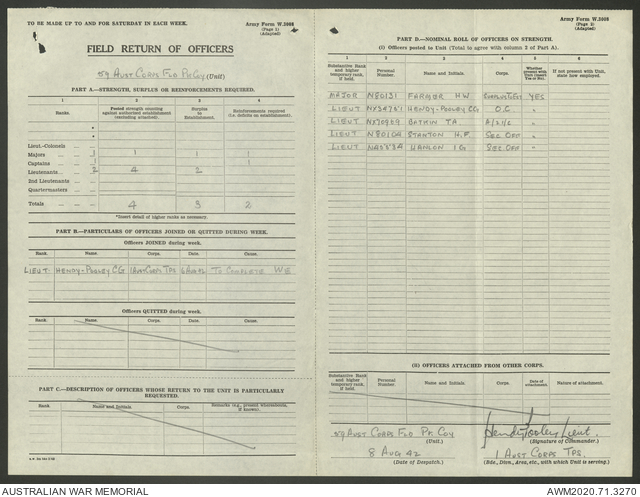 TO BE MADE UP TO AND FOR SATURDAY IN EACH WEEK.
Army Form W.3008
(Page 1)
(Adapted)
FIELD RETURN OF OFFICERS
59 AUST CORPS FLD PK COY (Unit)
PART A.—STRENGTH, SURPLUS OR REINFORCEMENTS REQUIRED.
1 2 3 4
Ranks. Posted strength counting against authorised establishment (excluding attached). Surplus to Establishment. Reinforcements required (i.e. deficits on establishment).
Lieut.-Colonels
Majors 1 1 1
Captains 1
Lieutenants 4 2
2nd Lieutenants
Quartermasters
Totals 4 3 2
*Insert detail of higher ranks as necessary.
PART B.—PARTICULARS OF OFFICERS JOINED OR QUITTED DURING WEEK.
Officers JOINED during week.
Rank. Name. Corps. Date. Cause.
LIEUT. HENDY-POOLEY CG 1 AUST CORPS TPS TO COMPLETE WE
Officers QUITTED during week.
Rank. Name. Corps. Date. Cause.
PART C.—DESCRIPTION OF OFFICERS WHOSE RETURN TO THE UNIT IS PARTICULARLY REQUESTED.
Rank. Name. Corps. Remarks (e.g., present whereabouts, if known).
Army Form W.3008
(Page 2)
(Adapted)
PART D.—NOMINAL ROLL OF OFFICERS ON STRENGTH.
(i) Officers posted to Unit (Total to agree with column 2 of Part A).
1 2 3 4 5 6
Substantive Rank and higher temporary rank, if held. Personal Number. Name and Initials. Corps. Whether present with Unit (insert Yes or No). If not present with Unit, state how employed.
MAJOR NX0131 FARMER HW YES
LIEUT HENDY-POOLEY CG O.C. "
LIEUT NX70969 TA "
LIEUT STANTON H.F. SEC OFF "
LIEUT HANLON IG SEC OFF "
(ii) OFFICERS ATTACHED FROM OTHER CORPS.
Substantive Rank and higher temporary rank, if held. Personal Number. Name and Initials. Corps. Date of attachment. Nature of attachment.
59 AUST CORPS FLD PK COY
(Unit.)
Hendy Pooley Lieut.
(Signature of Commander.)
8 AUG 42
(Date of Despatch.)
1 AUST CORPS TPS.
(Bde., Divn., Area, etc., with which Unit is serving.)
AUSTRALIAN WAR MEMORIAL
AWM2020.71.3270